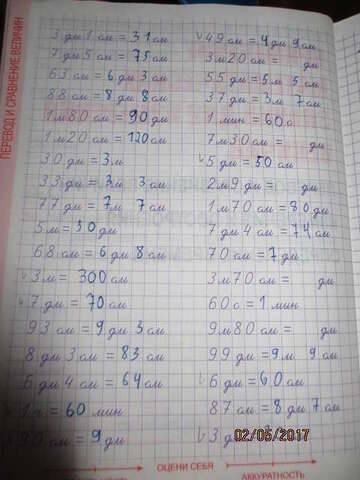 ПЕРЕВОД И СРАВНЕНИЕ ВЕЛИЧИН
3 дм 1 см = 31 см
7 дм 5 см = 75 см
63 см = 6 дм 3 см
88 см = 8 дм 8 см
1 м 80 см = 90 дм
1 м 20 см = 120 см
30 дм = 3 м
33 дм = 3 м 3 см
77 дм = 7 м 7 см
5 м = 50 дм
68 см = 6 дм 8 см
3 м = 300 см
7 дм = 70 см
93 см = 9 дм 3 см
8 дм 3 см = 83 см
6 дм 4 см = 64 см
1 ч = 60 мин
90 см = 9 дм
49 см = 4 дм 9 см
3 м 20 см = дм
55 дм = 5 м 5 см
37 дм = 3 м 7 см
1 мин = 60 с
7 м 30 см = дм
5 дм = 50 см
2 м 9 дм = дм
1 м 70 см = 80 дм
7 дм 4 см = 74 см
70 см = 7 дм
3 м 70 см = дм
60 с = 1 мин
9 м 80 см = дм
99 дм = 9 м 9 см
6 дм = 60 см
87 см = 8 дм 7 см
3 д
02/05/2017
ОЦЕНИ СЕБЯ
АККУРАТНОСТЬ